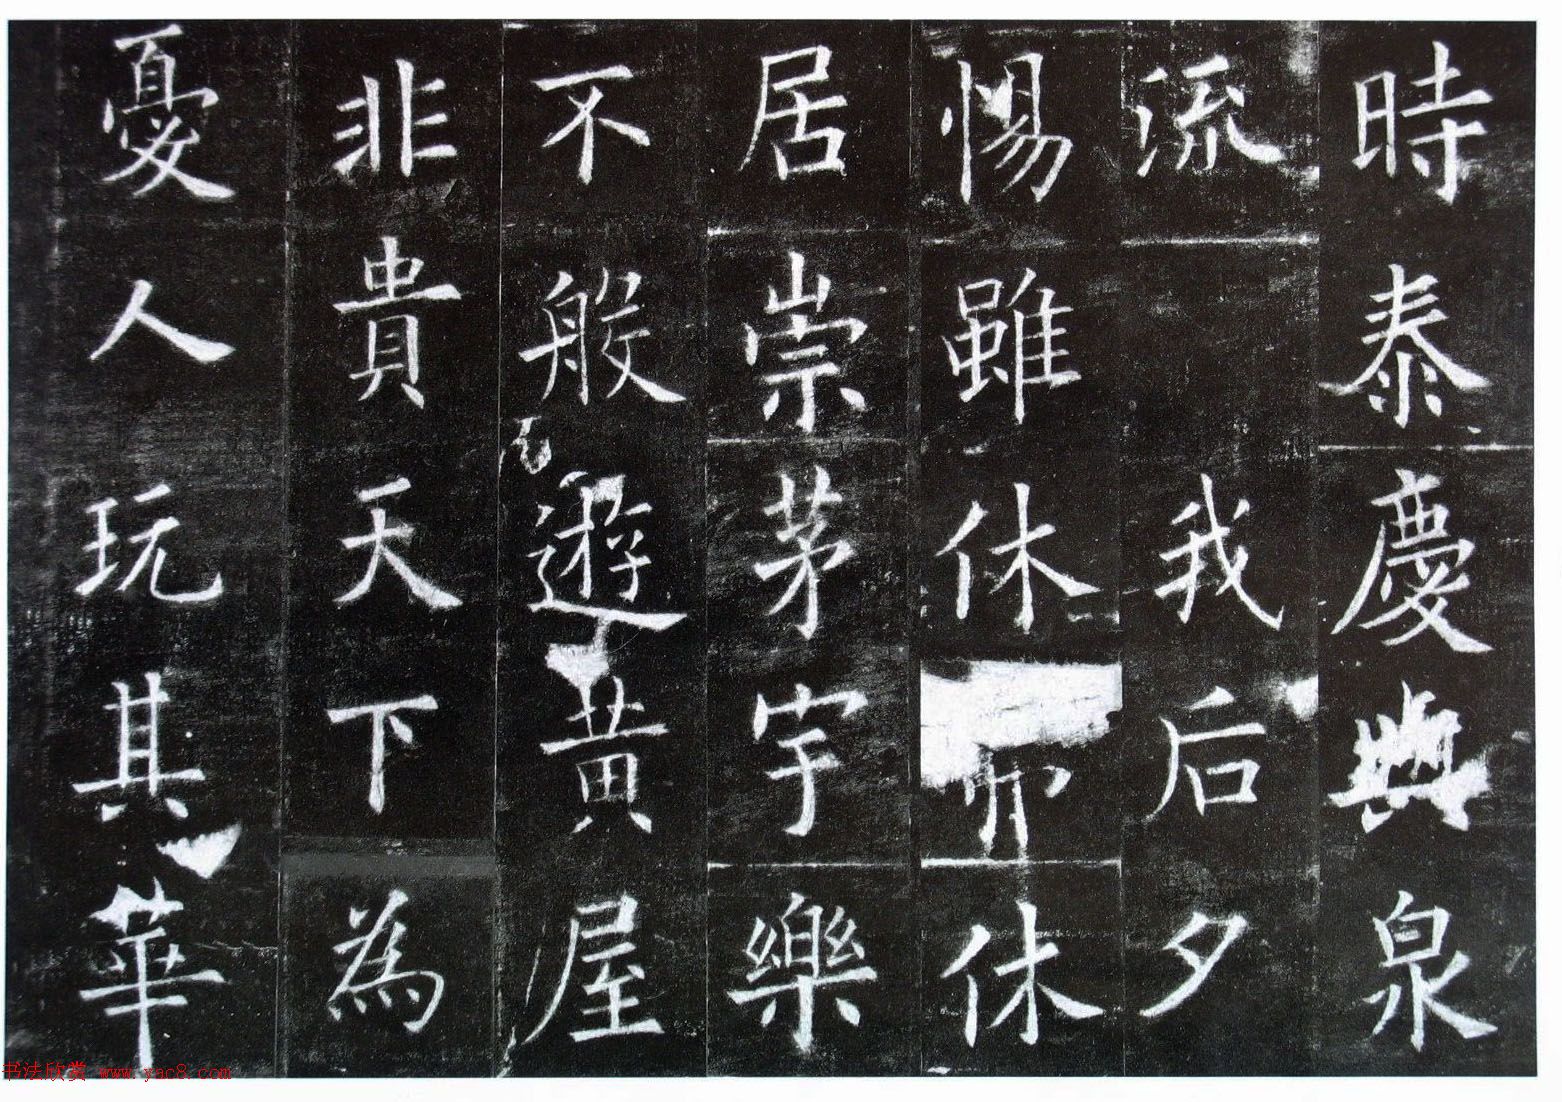 時泰慶與泉
流我后夕
惕雖休弗休
居崇茅宇樂
不般遊黃屋
非貴天下為
憂人玩其華
书法欣赏 www.yac8.com